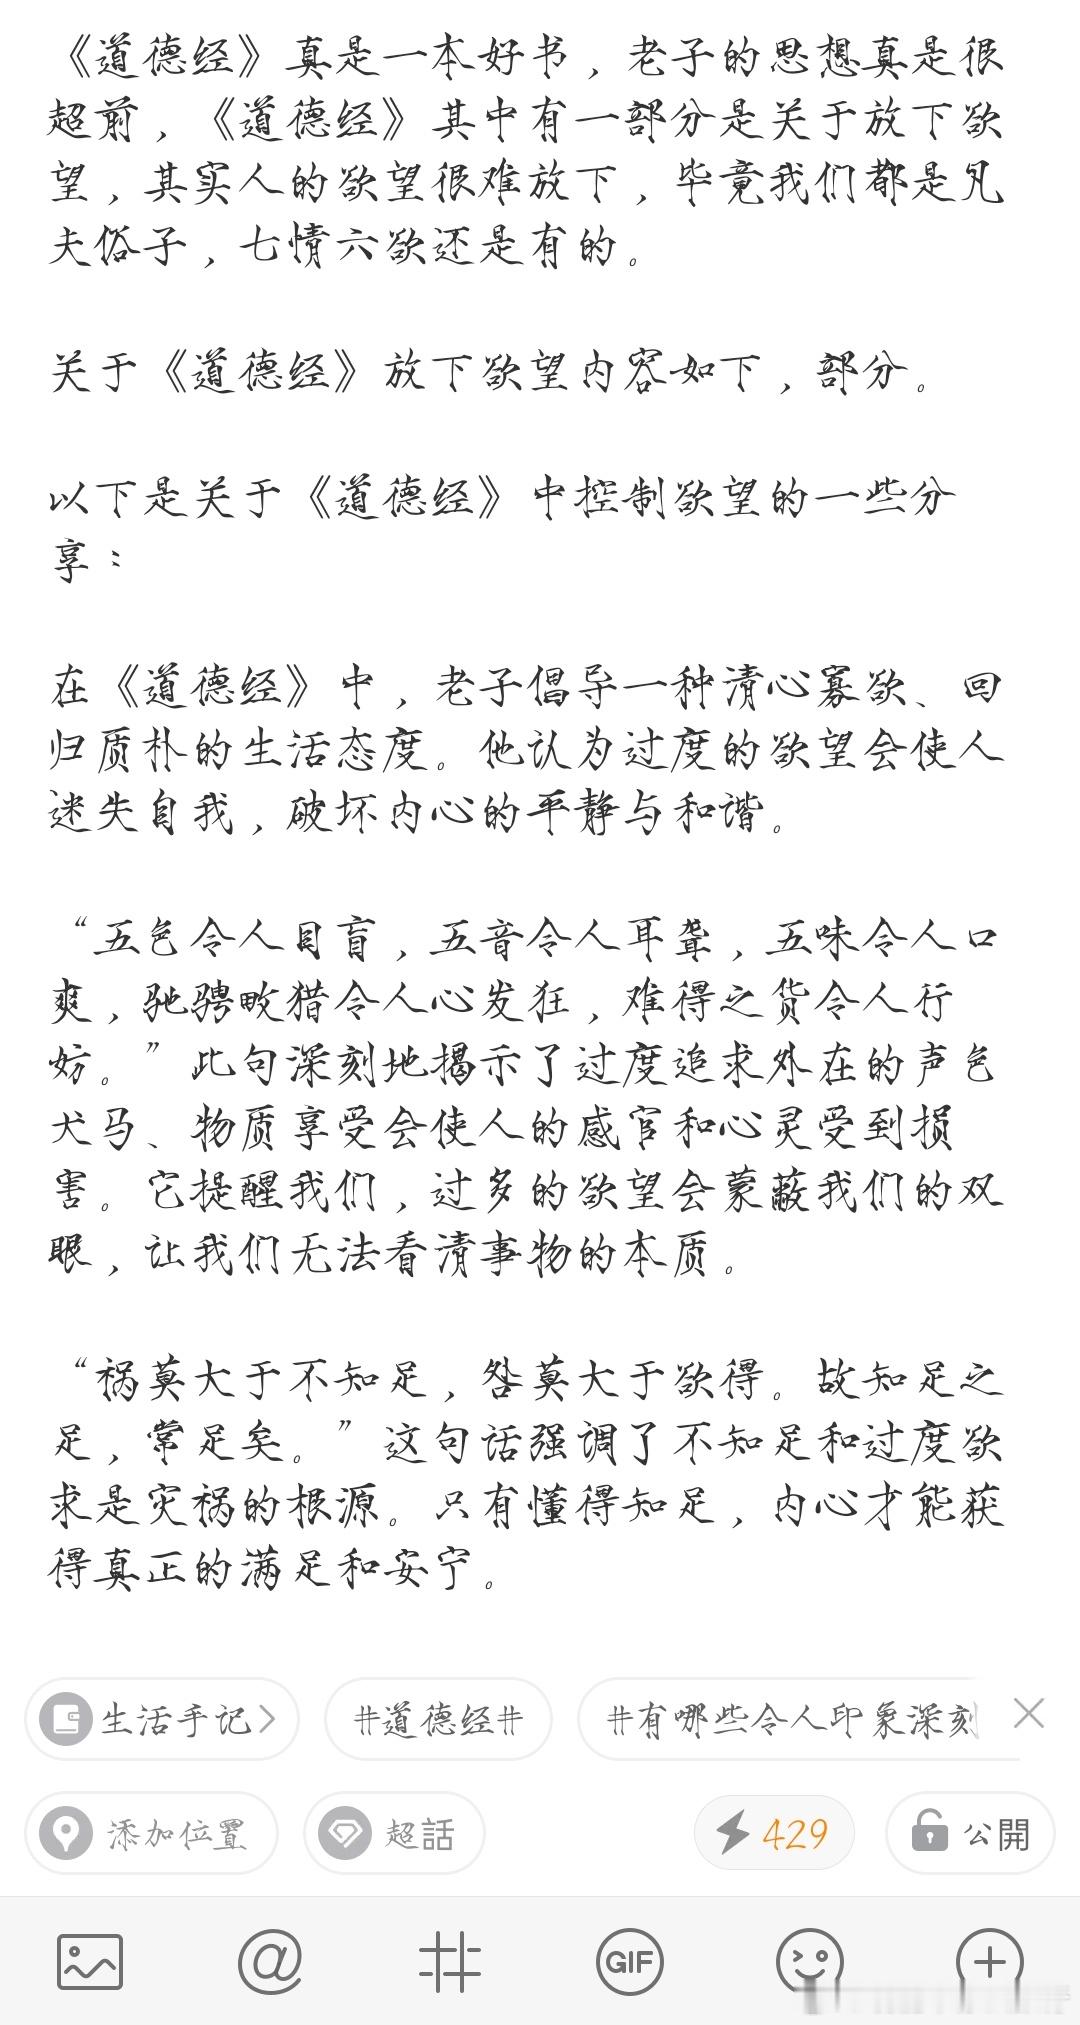 《道德经》真是一本好书，老子的思想真是很
超前，《道德经》其中有一部分是关于放下欲
望，其实人的欲望很难放下，毕竟我们都是凡
夫俗子，七情六欲还是有的。
关于《道德经》放下欲望内容如下，部分。
以下是关于《道德经》中控制欲望的一些分
享：
在《道德经》中，老子倡导一种清心寡欲、回
归质朴的生活态度。他认为过度的欲望会使人
迷失自我，破坏内心的平静与和谐。
“五色令人目盲，五音令人耳聋，五味令人口
爽，驰骋畋猎令人心发狂，难得之货令人行
妨。”此句深刻地揭示了过度追求外在的声色
犬马、物质享受会使人的感官和心灵受到损
害。它提醒我们，过多的欲望会蒙蔽我们的双
眼，让我们无法看清事物的本质。
“祸莫大于不知足，咎莫大于欲得。故知足之
足，常足矣。”这句话强调了不知足和过度欲
求是灾祸的根源。只有懂得知足，内心才能获
得真正的满足和安宁。
生活手记 #道德经# #有哪些令人印象深刻
添加位置 超話 429 公開
GIF